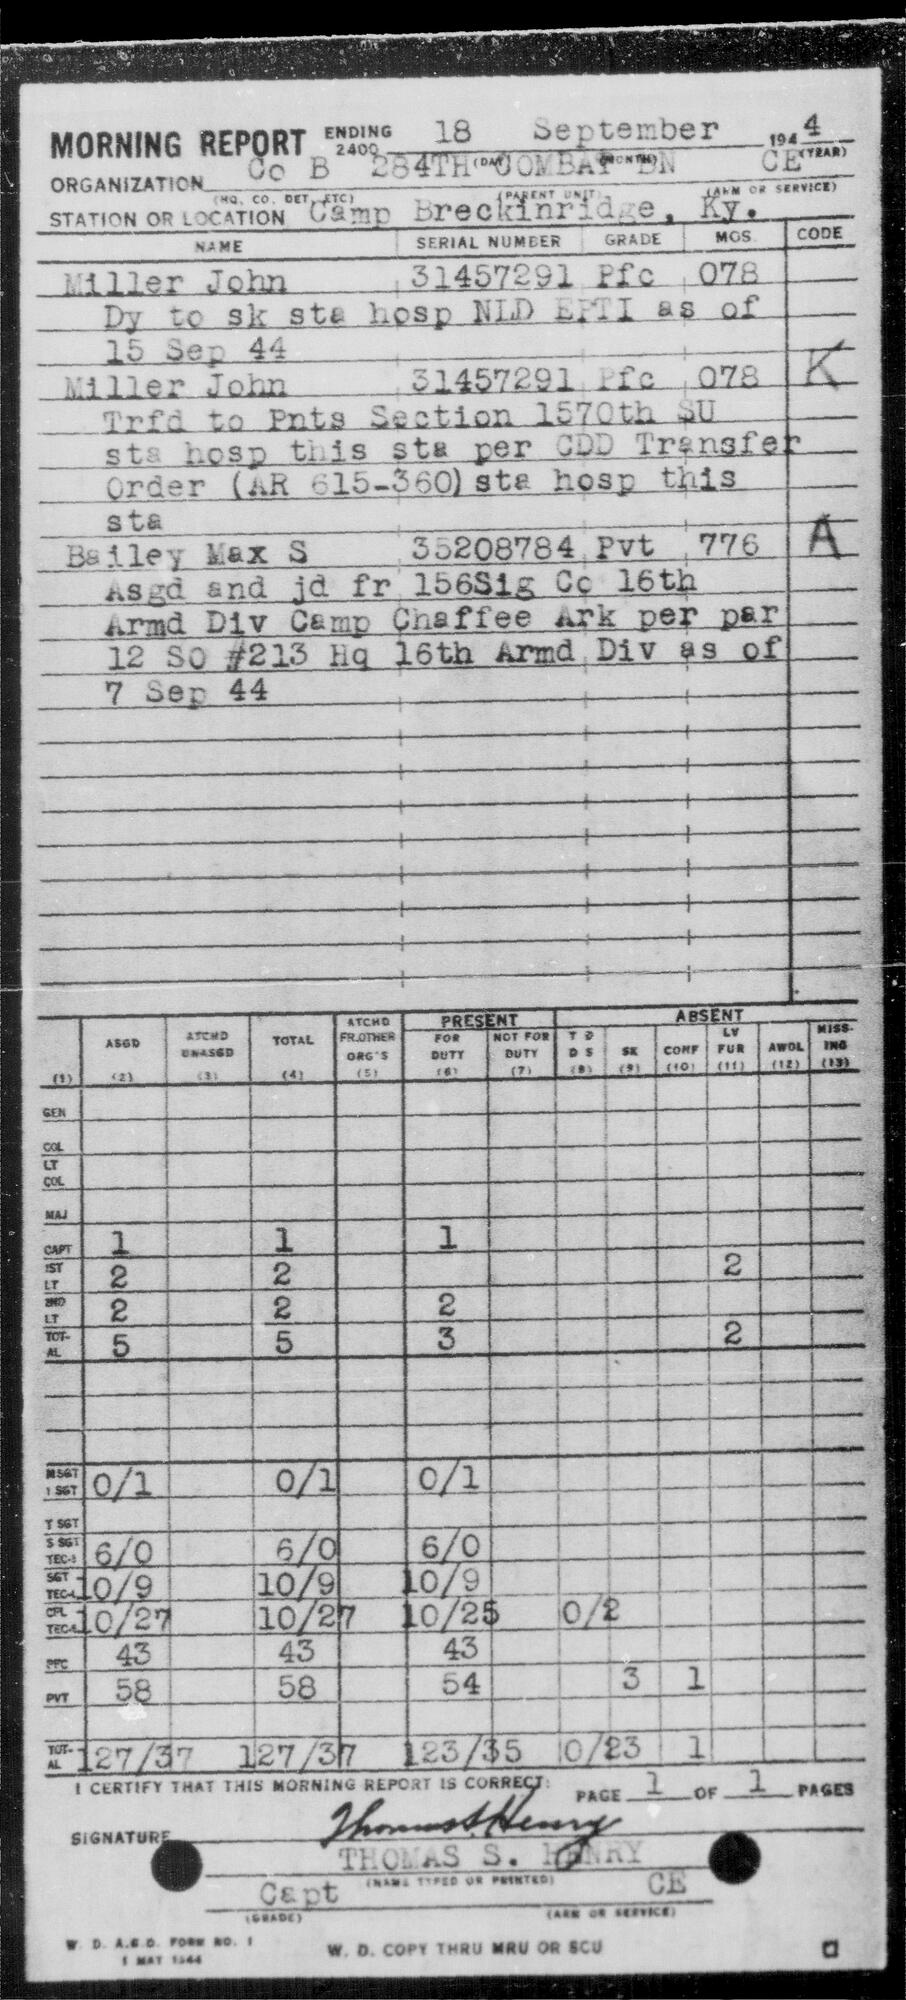 MORNING REPORT ENDING 2400 18 September 1944
(DAY) (MONTH) (YEAR)
ORGANIZATION Co B 284TH COMBAT BN CE
(HQ. CO. DET. ETC) (PARENT UNIT) (ARM OR SERVICE)
STATION OR LOCATION Camp Breckinridge, Ky.
NAME SERIAL NUMBER GRADE MOS. CODE
Miller John 31457291 Pfc 078
Dy to sk sta hosp NLD EPTI as of
15 Sep 44
Miller John 31457291 Pfc 078 K
Trfd to Pnts Section 1570th SU
sta hosp this sta per CDD Transfer
Order (AR 615-360) sta hosp this
sta
Bailey Max S 35208784 Pvt 776 A
Asgd and jd fr 156Sig Co 16th
Armd Div Camp Chaffee Ark per par
12 SO #213 Hq 16th Armd Div as of
7 Sep 44
PRESENT ABSENT
ASGD ATCHD UNASGD TOTAL ATCHD FR.OTHER ORG'S FOR DUTY NOT FOR DUTY T D D S SK CONF LV FUR AWOL MISSING
(1) (2) (3) (4) (5) (6) (7) (8) (9) (10) (11) (12) (13)
GEN
COL
LT COL
MAJ
CAPT 1 1 1
1ST LT 2 2 2
2ND LT 2 2 2
TOTAL 5 5 3 2
M SGT 1 SGT 0/1 0/1 0/1
T SGT
S SGT TEC-3 6/0 6/0 6/0
SGT TEC-4 10/9 10/9 10/9
CPL TEC-5 10/27 10/27 10/25 0/2
PFC 43 43 43
PVT 58 58 54 3 1
TOTAL 127/37 127/37 123/35 0/23 1
I CERTIFY THAT THIS MORNING REPORT IS CORRECT: PAGE 1 OF 1 PAGES
SIGNATURE Thomas S. Henry
THOMAS S. HENRY
(NAME TYPED OR PRINTED)
Capt CE
(GRADE) (ARM OR SERVICE)
W. D. A.G.O. FORM NO. 1
1 MAY 1944
W. D. COPY THRU MRU OR SCU